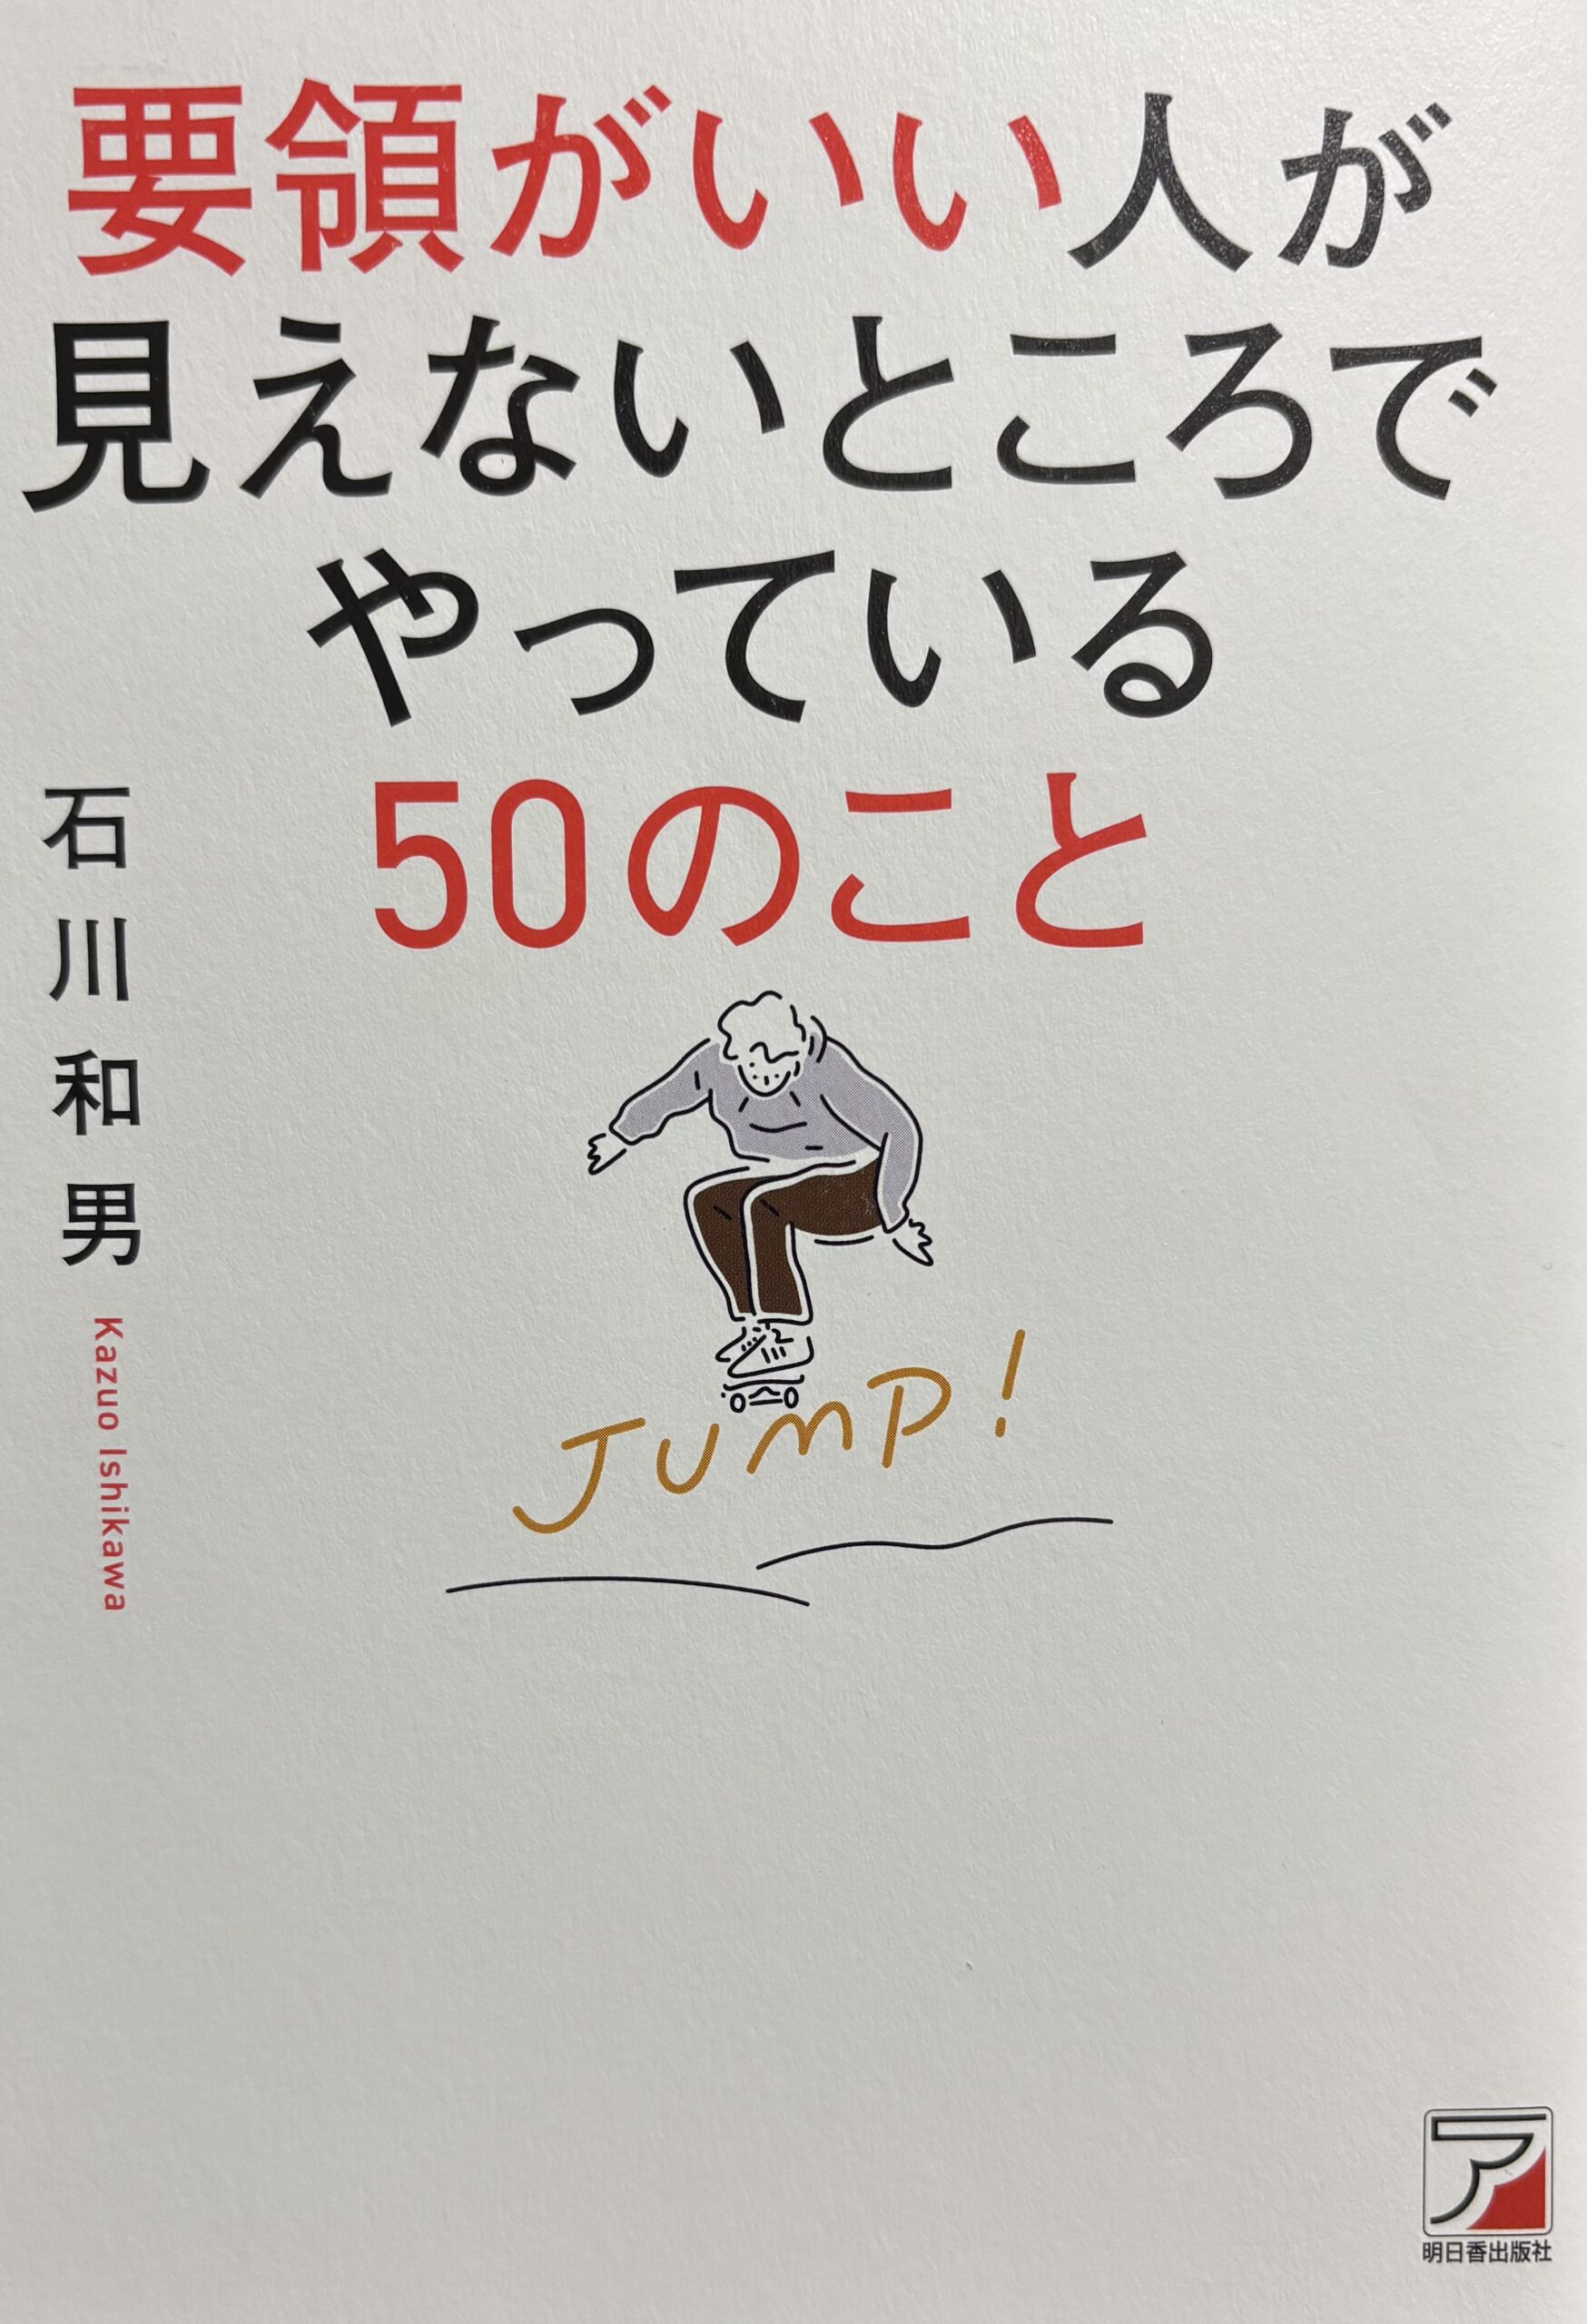 要領がいい人が
見えないところで
やっている
50のこと
石川和男
Kazuo Ishikawa
JUMP!
ア
明日香出版社